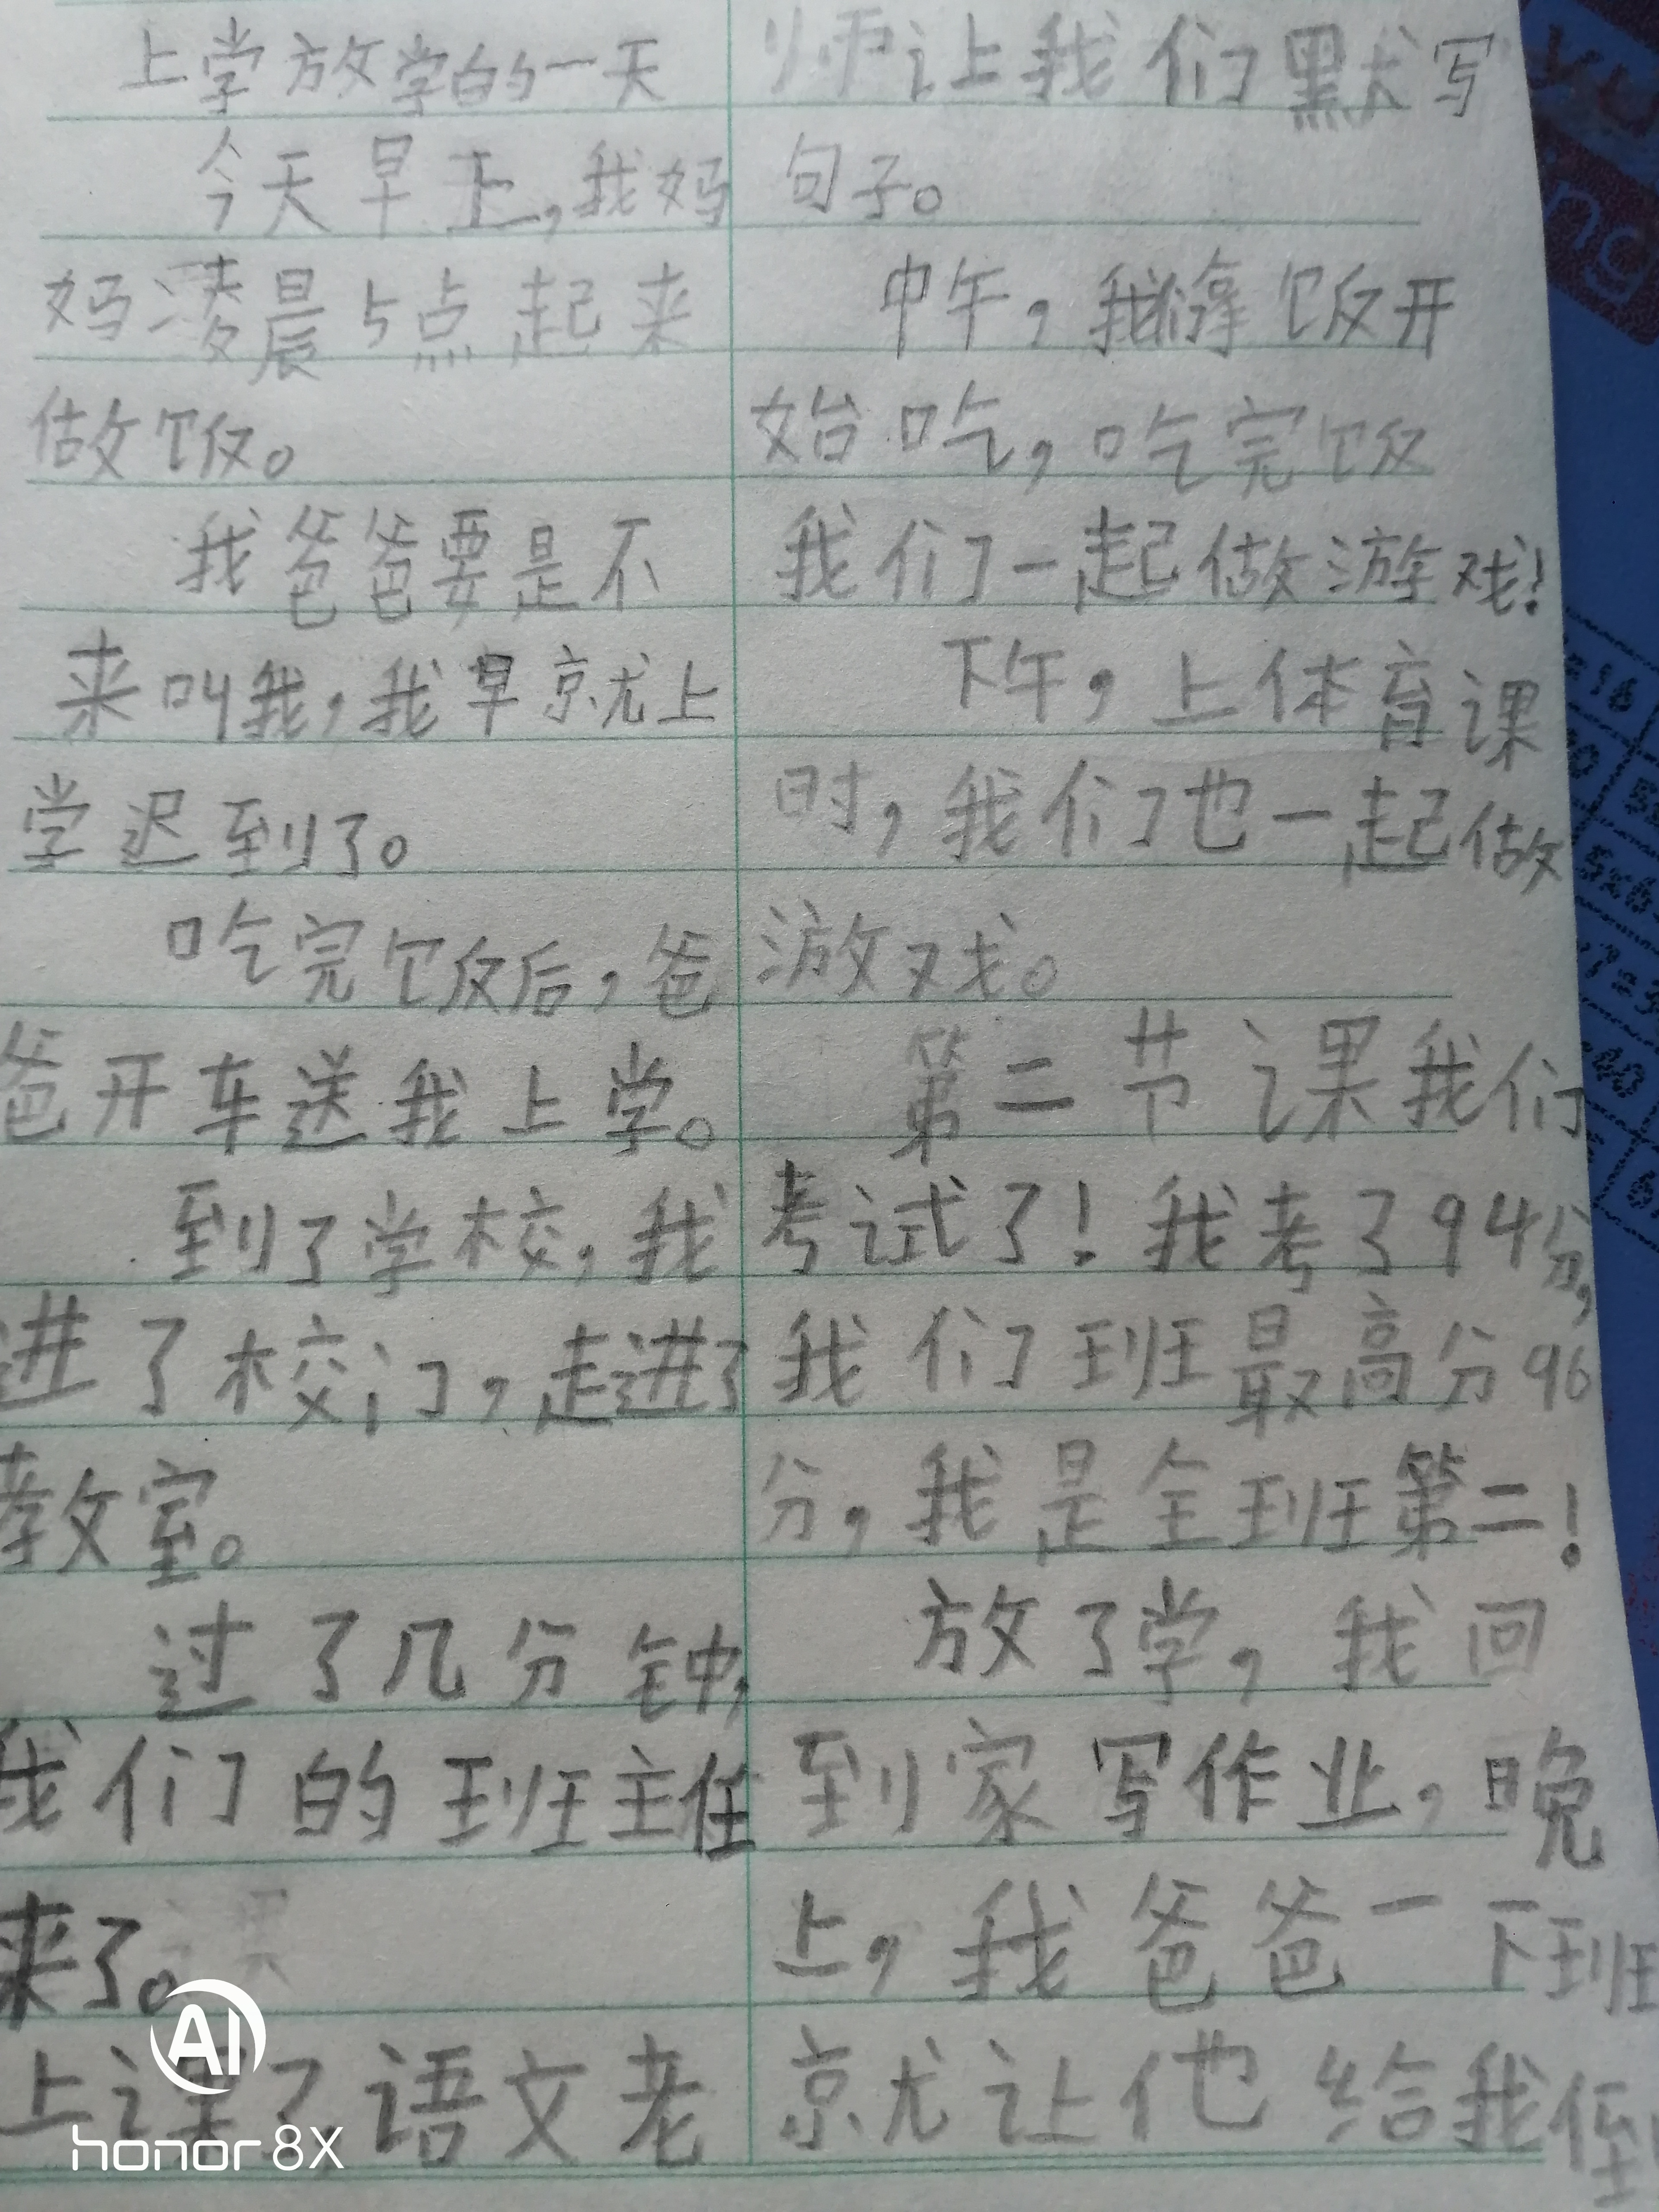 上学放学的一天
今天早上,我妈
妈凌晨5点起来
做饭。
我爸爸要是不
来叫我,我早就上
学迟到了。
吃完饭后,爸
爸开车送我上学。
到了学校,我
进了校门,走进了
教室。
过了几分钟,
我们的班主任
来了。
上课了,语文老
师让我们默写
句子。
中午,我们拿饭开
始吃,吃完饭
我们一起做游戏!
下午,上体育课
时,我们也一起做
游戏。
第二节课我们
考试了!我考了94分,
我们班最高分96
分,我是全班第二!
放了学,我回
到家写作业,晚
上,我爸爸一下班
就让他给我倒
AI
honor 8X
yu
ng